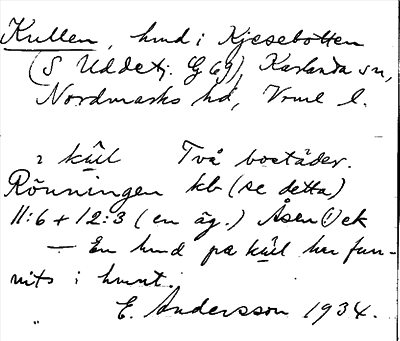 Kullen, hmd i Kjesebotten
(S Uddetj. G 69), Karlanda sn,
Nordmarks hd, Vrml l.
2 kũl Två bostäder.
Rönningen kb (se detta)
11:6 + 12:3 (en äg.) Åsen (1) ek
— En hmd på kũl har fun-
nits i hmnt.
E. Andersson 1934.